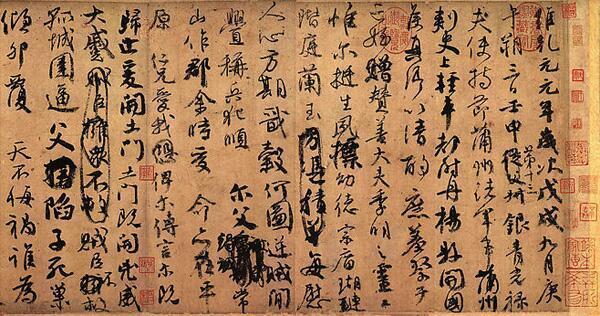 維乾元元年歲次戊戌九月庚
午朔三日壬申第十三叔銀青光祿
夫使持節蒲州諸軍事蒲州
刺史上輕車都尉丹楊縣開國
侯真卿以清酌庶羞祭于
亡姪贈贊善大夫季明之靈曰
惟爾挺生夙標幼德宗廟瑚璉
階庭蘭玉方憑積善每慰
人心方期戩穀何圖逆賊間
釁稱兵犯順爾父竭誠常
山作郡余時受命亦在平
原仁兄愛我俾爾傳言爾既
歸止爰開土門土門既開凶威
大蹙賊臣擁衆不救賊臣不救
孤城圍逼父陷子死巢
傾卵覆天不悔禍誰為